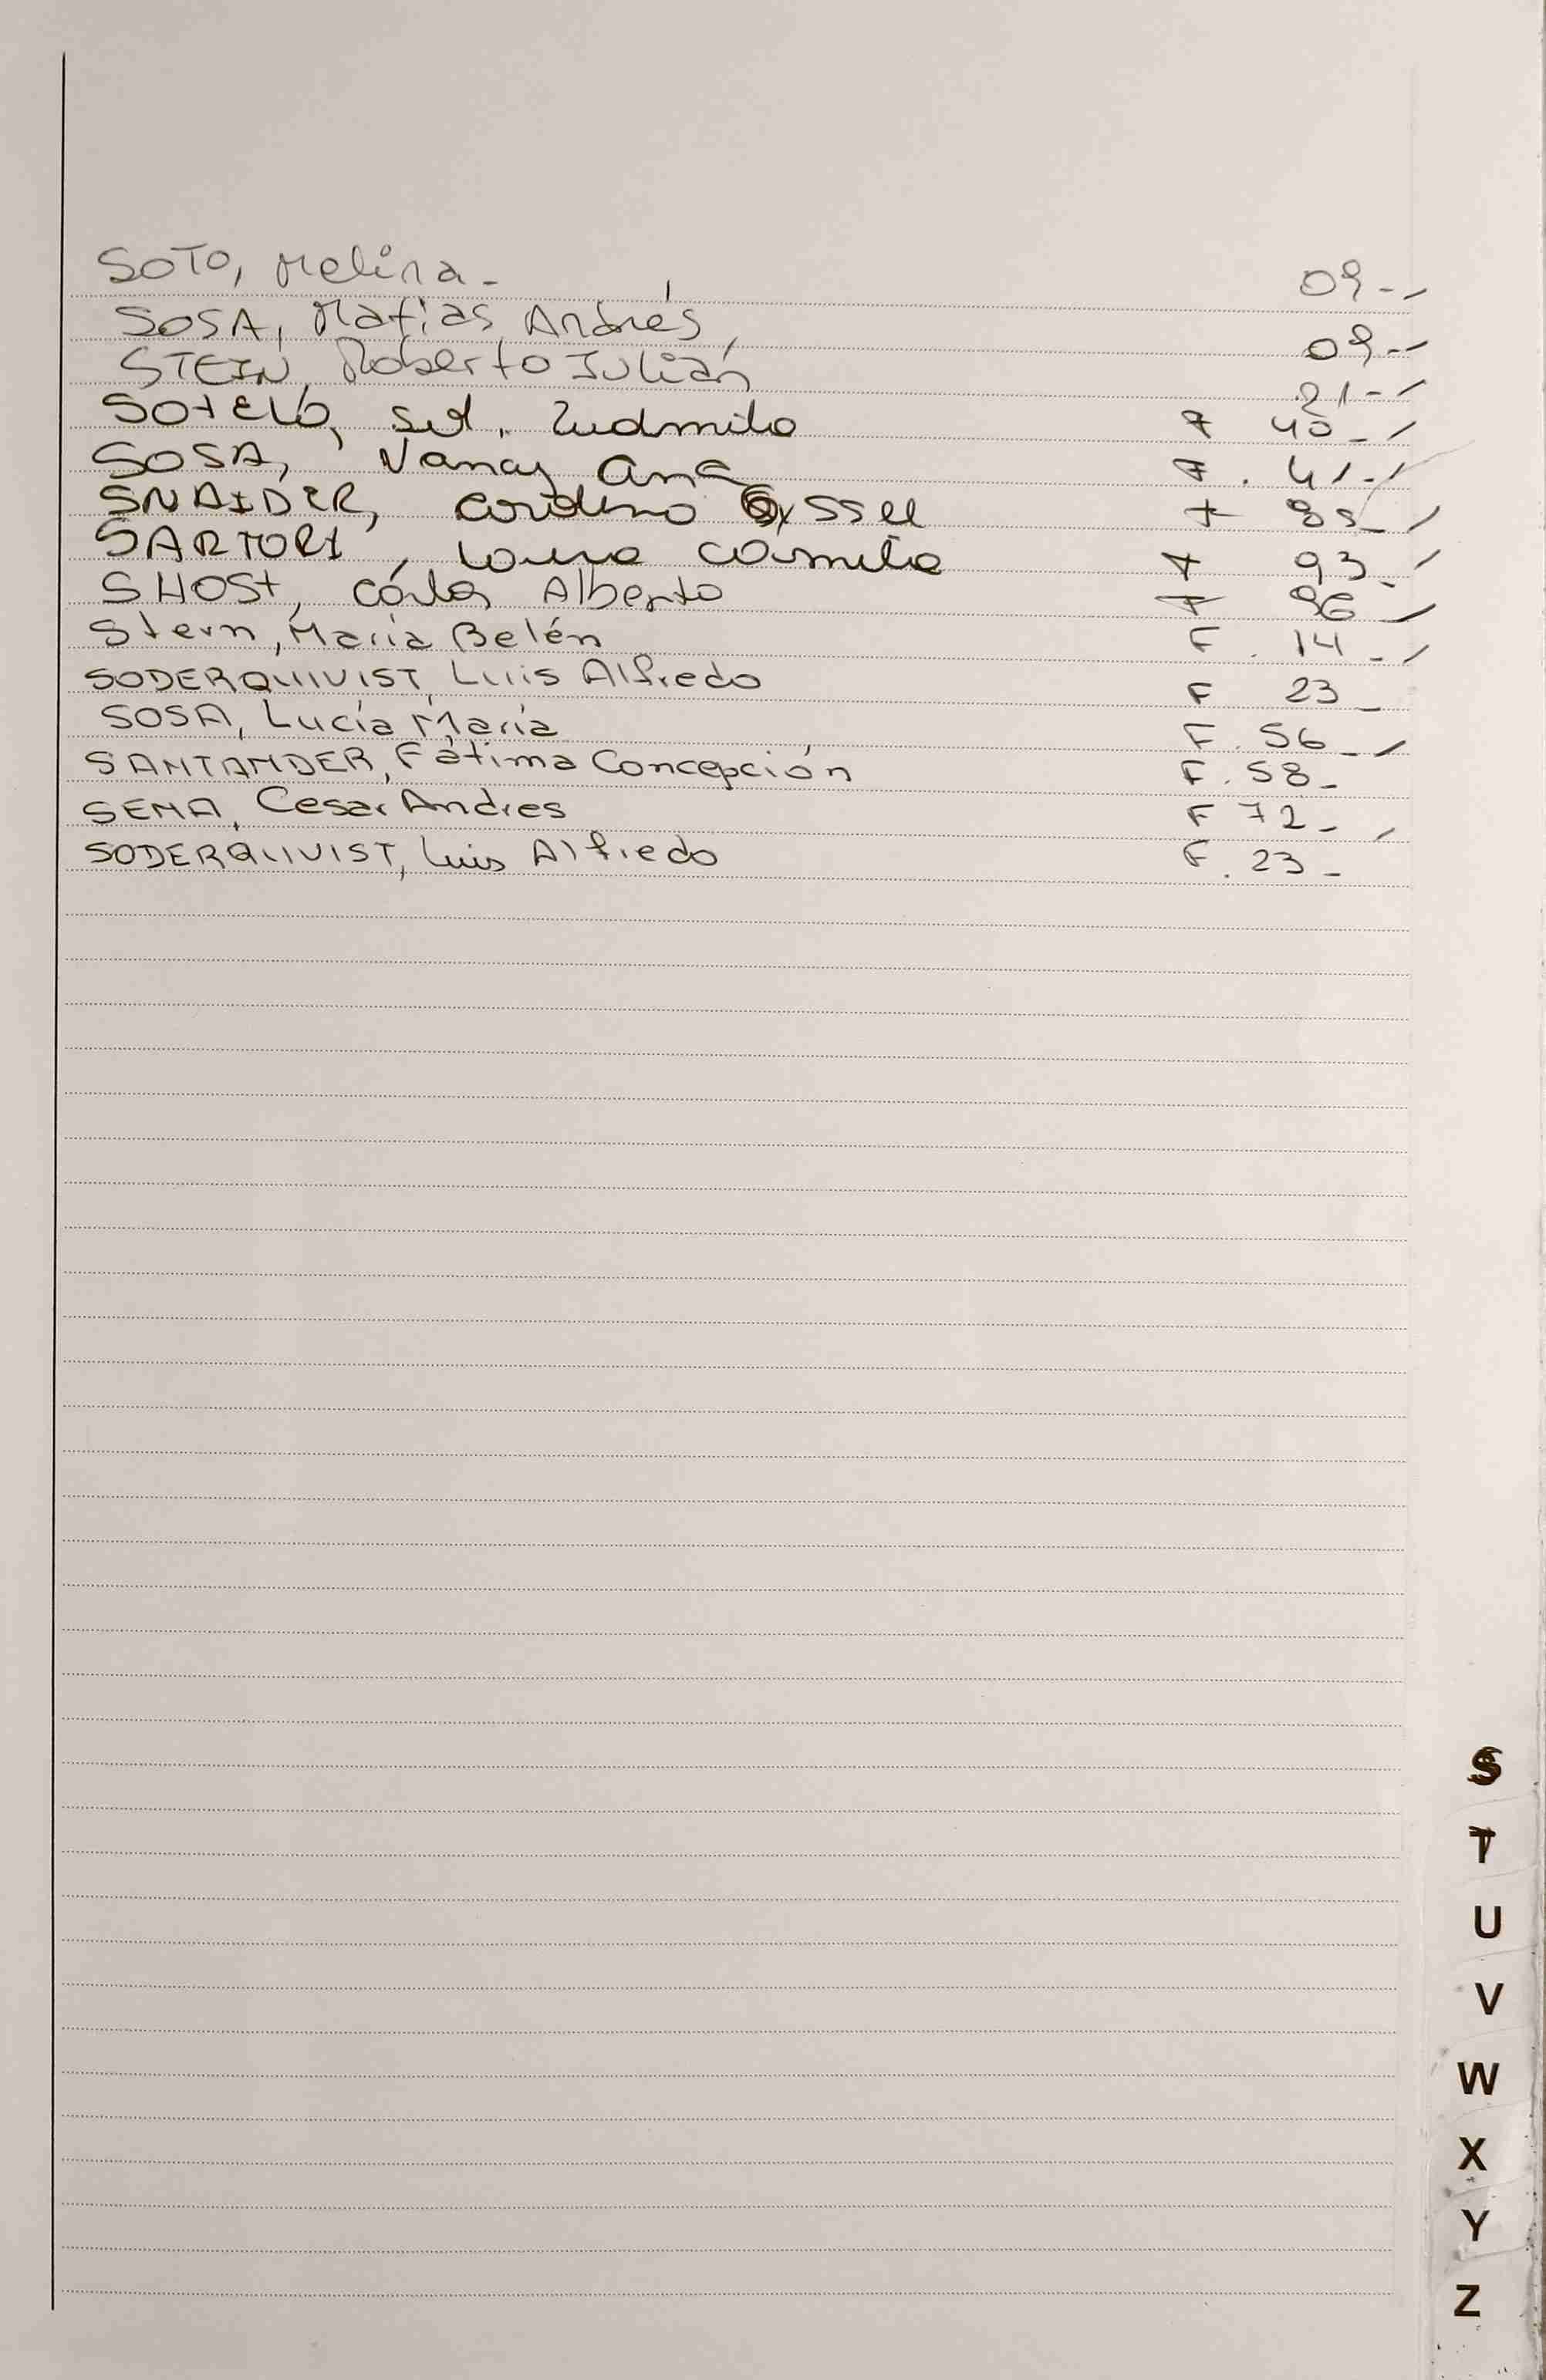 SOTO, Melina - 09 --
SOSA, Matías Andrés 09 --
STEIN, Roberto Julián 21 --
SOTELO, Sol. Ludmila F 40 -
SOSA, Nancy Ana F. 41 -
SNAIDER, Carolina Gyssel F -
SARTORI, Camila F 93 -
SHOSt, Carlos Alberto F 96 -
Stern, María Belén F. 14 -
SODERQUIVIST, Luis Alfredo F 23 -
SOSA, Lucía María F. 56 -
SANTANDER, Fátima Concepción F. 58 -
SENA, Cesar Andres F 72 -
SODERQUIVIST, Luis Alfredo F. 23 -
S
T
U
V
W
X
Y
Z